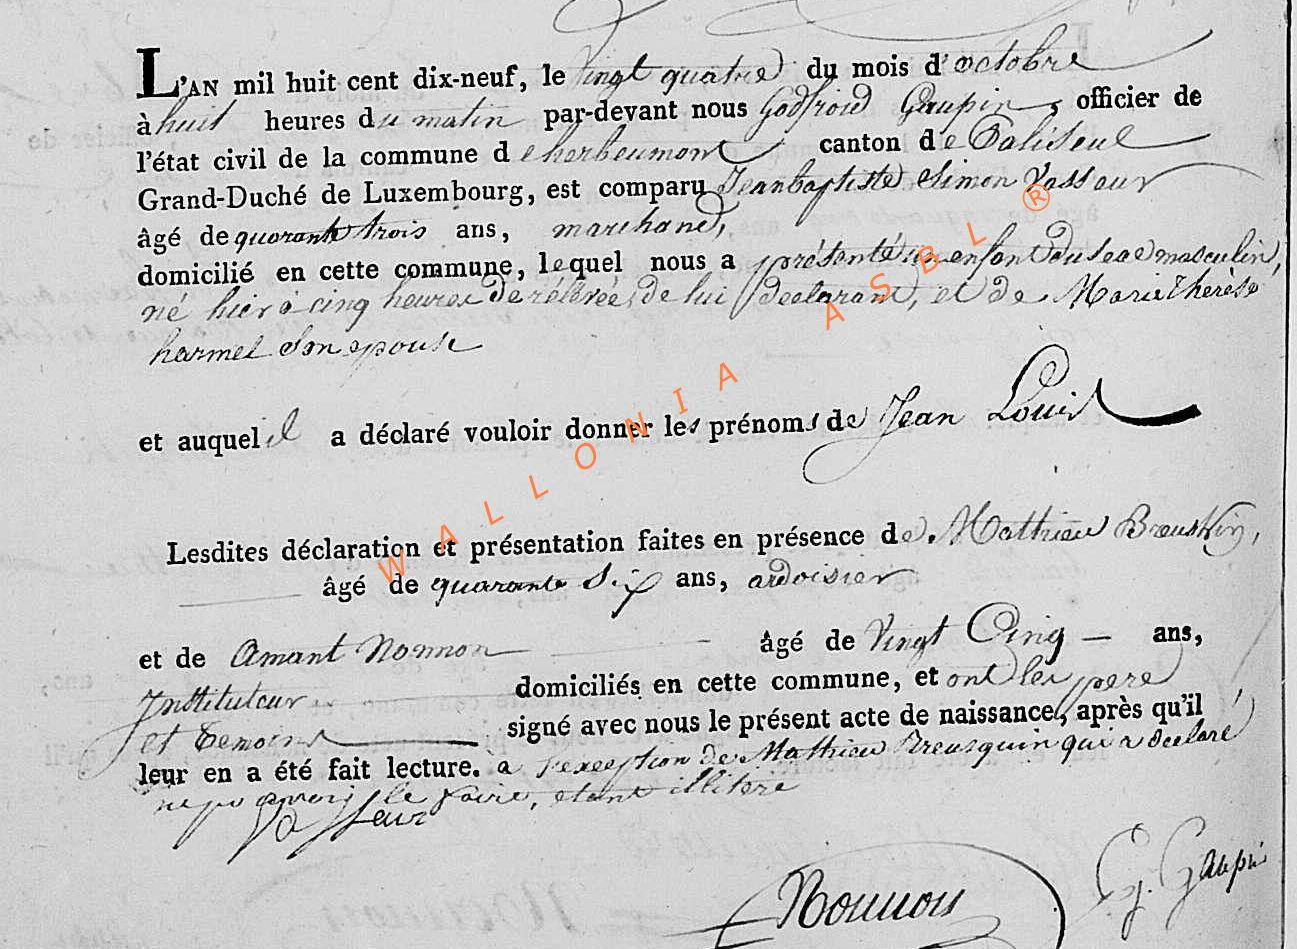 L'AN mil huit cent dix-neuf, le vingt quatre du mois d'octobre
à huit heures du matin par-devant nous Godfroid Gaupin, officier de
l'état civil de la commune d'herbeumont canton de Paliseul
Grand-Duché de Luxembourg, est comparu Jeanbaptiste Simon Vasseur
âgé de quarante trois ans, marchand,
domicilié en cette commune, lequel nous a présenté un enfant du sexe masculin,
né hier à cinq heures de rélévée, de lui declarant, et de Marie thérèse
harmel Son epouse
et auquel il a déclaré vouloir donner les prénoms de Jean Louis
Lesdites déclaration et présentation faites en présence de Mathieu Breuskin,
âgé de quarante Six ans, ardoisier
et de Amant Nonnon âgé de Vingt Cinq ans,
Instituteur domiciliés en cette commune, et ont les pere
et temoins signé avec nous le présent acte de naissance, après qu'il
leur en a été fait lecture. a l'exception de Mathieu Breusquin qui a declaré
ne pouvoir le faire, etant illiteré
Vasseur
Nonnon
G. Gaupin
WALLONIA ASBL ®